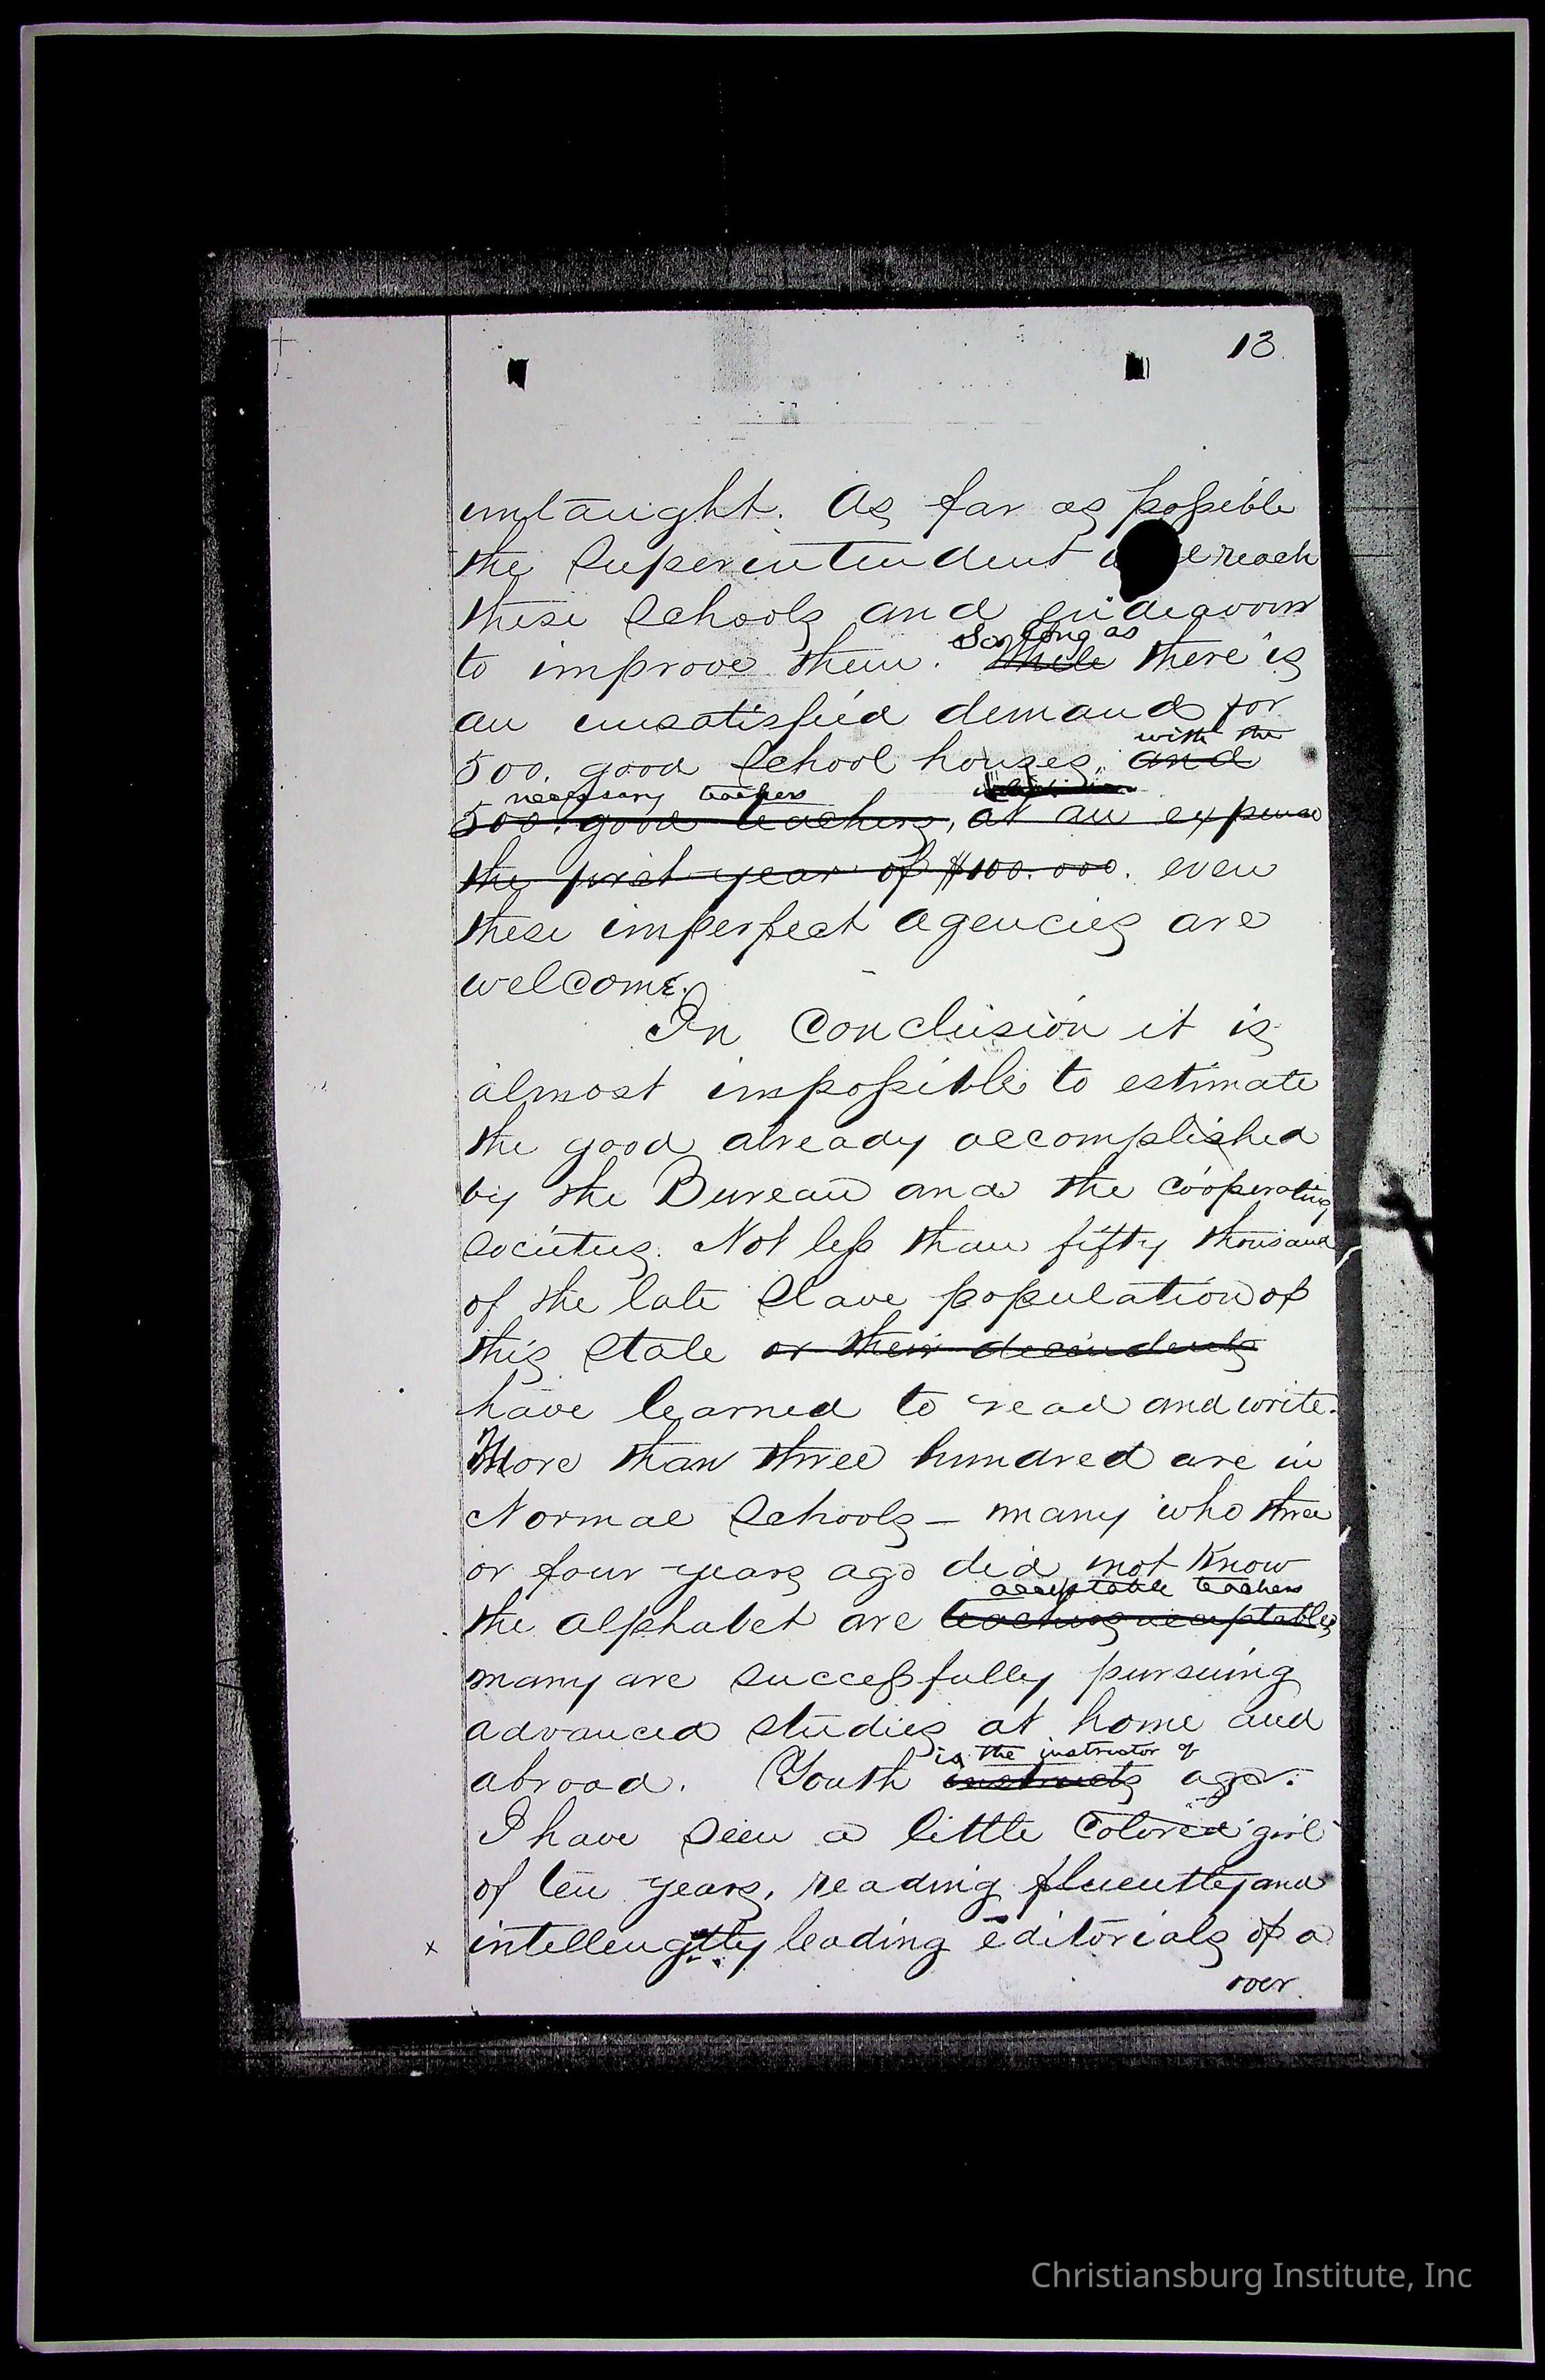 13
untaught. As far as possible
the Superintendent reach
these Schools and endeavors
to improve them. So long as
While there is
an unsatisfied demand for
500. good School houses, with the
and
necessary teachers
500. good teachers, at an expense
the first year of $100.000. even
these imperfect agencies are
welcome.
In Conclusion it is
almost impossible to estimate
the good already accomplished
by the Bureau and the cooperating
Societies. Not less than fifty thousand
of the late Slave population of
this State or their decendents
have learned to read and write.
More than three hundred are in
Normal Schools – many who three
or four years ago did not know
acceptable teachers
the alphabet are teaching acceptably
many are successfully pursuing
advanced studies at home and
is the instructor of
abroad. Youth instructs age.
I have seen a little Colored girl
of ten years, reading fluently and
x intellengtly leading editorials of a
over.
Christiansburg Institute, Inc